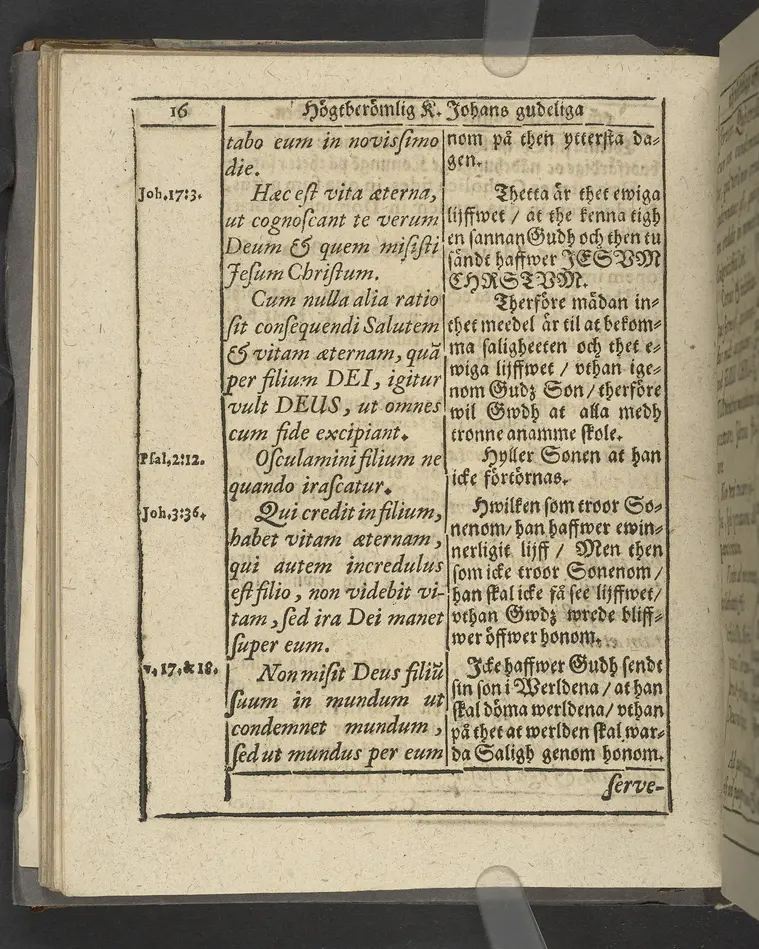 16
Högtberömlig K. Johans gudeliga
Joh.17:3.
Psal.2:12.
Joh.3:36.
v. 17. & 18.
tabo eum in novissimo
die.
Hæc est vita æterna,
ut cognoscant te verum
Deum & quem misisti
Jesum Christum.
Cum nulla alia ratio
sit consequendi Salutem
& vitam æternam, quā
per filium DEI, igitur
vult DEUS, ut omnes
cum fide excipiant.
Osculamini filium ne
quando irascatur.
Qui credit in filium,
habet vitam æternam,
qui autem incredulus
est filio, non videbit vi-
tam, sed ira Dei manet
super eum.
Non misit Deus filiū
suum in mundum ut
condemnet mundum,
sed ut mundus per eum
nom på then yttersta da-
gen.
Thetta är thet ewiga
lijffwet / at the kenna tigh
en sannan Gudh och then tu
sändt haffwer JESVM
CHRSTVM.
Therföre mädan in-
thet meedel är til at bekom-
ma saligheeten och thet e-
wiga lijffwet / vthan ige-
nom Gudz Son / therföre
wil Gwdh at alla medh
tronne anamme skole.
Hyller Sonen at han
icke förtörnas.
Hwilken som troor So-
nenom / han haffwer ewin-
nerligit lijff / Men then
som icke troor Sonenom /
han skal icke få see lijffwet /
vthan Gwdz wrede bliff-
wer öffwer honom.
Icke haffwer Gudh sendt
sin son i Werldena / at han
skal döma werldena / vthan
på thet at werlden skal war-
da Saligh genom honom.
serve-